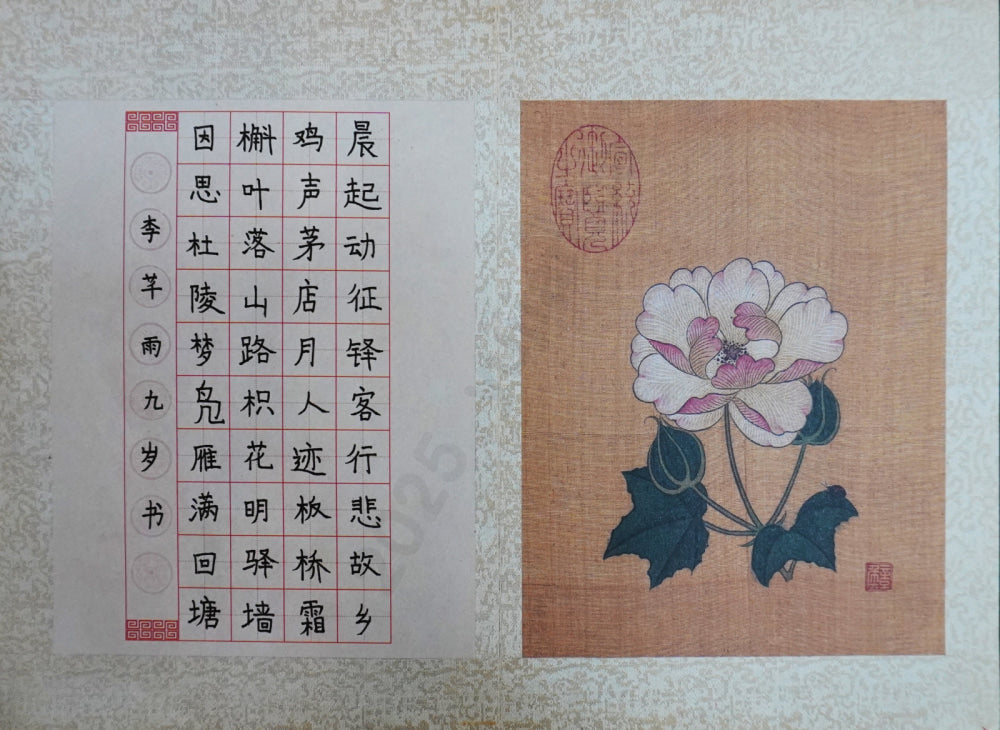 晨起动征铎客行悲故乡
鸡声茅店月人迹板桥霜
槲叶落山路枳花明驿墙
因思杜陵梦凫雁满回塘
李芊雨九岁书
2025